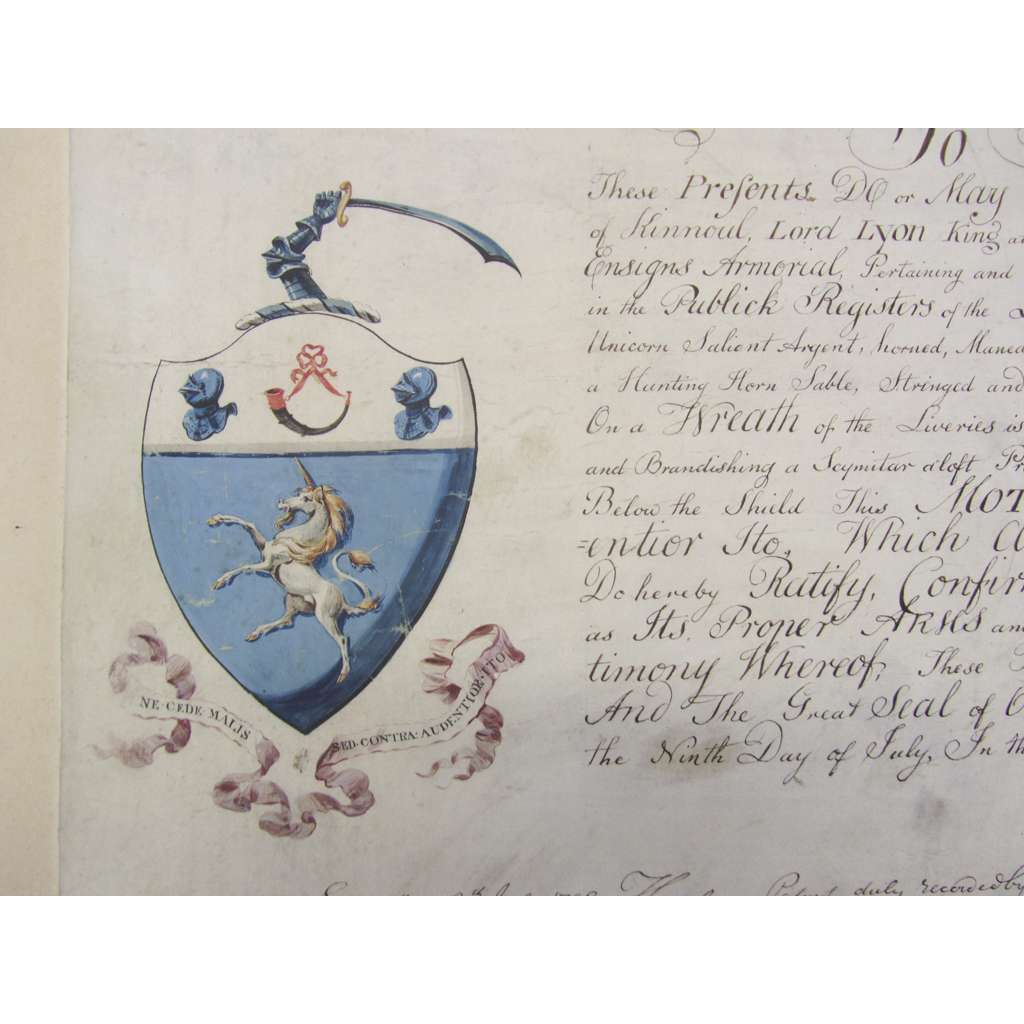 To
These Presents. DO or May
of Kinnoul, Lord Lyon King
Ensigns Armorial, Pertaining and
in the Publick Registers of the
Unicorn Salient Argent, horned, Maned
a Hunting Horn Sable, Stringed and
On a Wreath of the Liveries is
and Brandishing a Scymitar aloft
Below the Shield This MOT
=entior Ito, Which
Do hereby Ratify, Confir
as Its. Proper ARMS an
timony Whereof, These
And The Great Seal of
the Ninth Day of July, In th
NE·CEDE·MALIS
SED·CONTRA:AUDENTIOR·ITO
duly recorded by